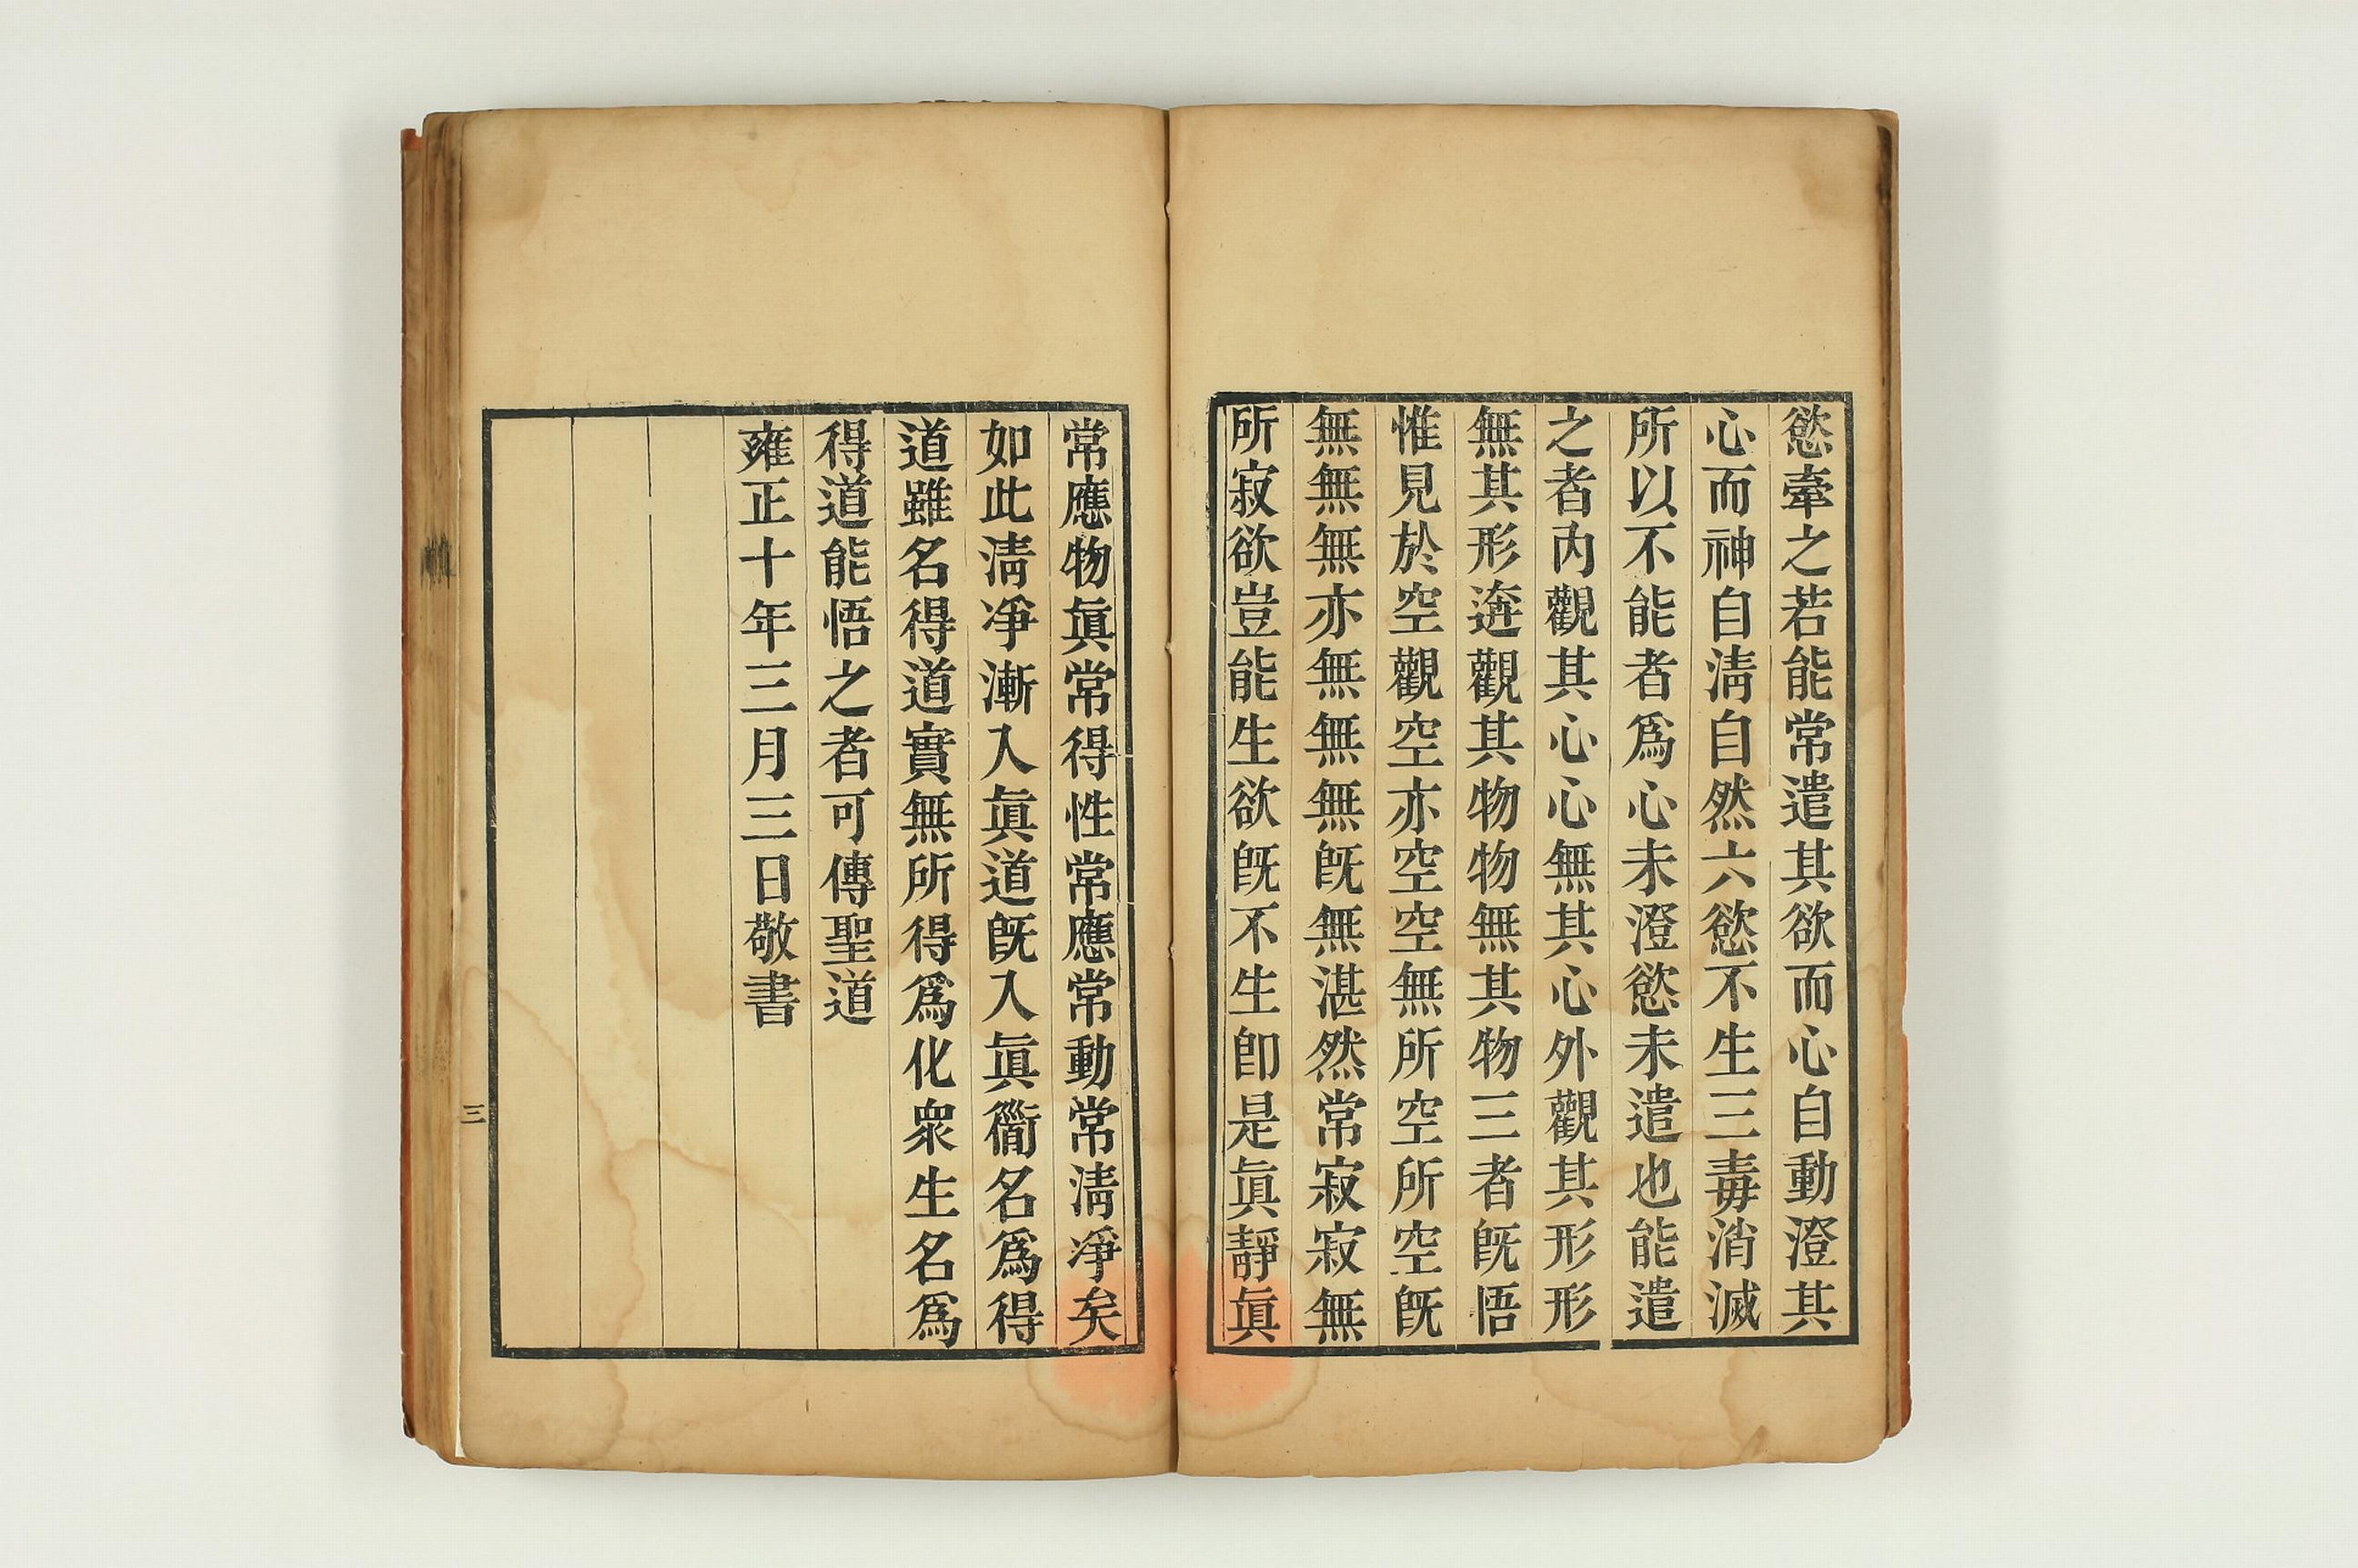 慾牽之若能常遣其欲而心自動澄其
心而神自淸自然六慾不生三毒消滅
所以不能者爲心未澄慾未遣也能遣
之者內觀其心心無其心外觀其形形
無其形遊觀其物物無其物三者旣悟
惟見於空觀空亦空空無所空所空旣
無無無亦無無無旣無湛然常寂寂無
所寂欲豈能生欲旣不生卽是眞靜眞
常應物眞常得性常應常動常淸凈矣
如此淸凈漸入眞道旣入眞衜名爲得
道雖名得道實無所得爲化衆生名爲
得道能悟之者可傳聖道
雍正十年三月三日敬書
三